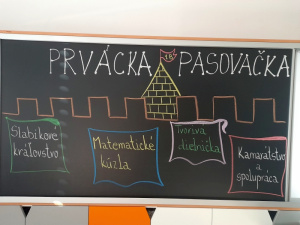 PRVÁCKA PASOVAČKA
Slabikové
kráľovstvo
Matematické
kúzla
Tvorivá
dielnička
Kamarátstvo
a
spolupráca